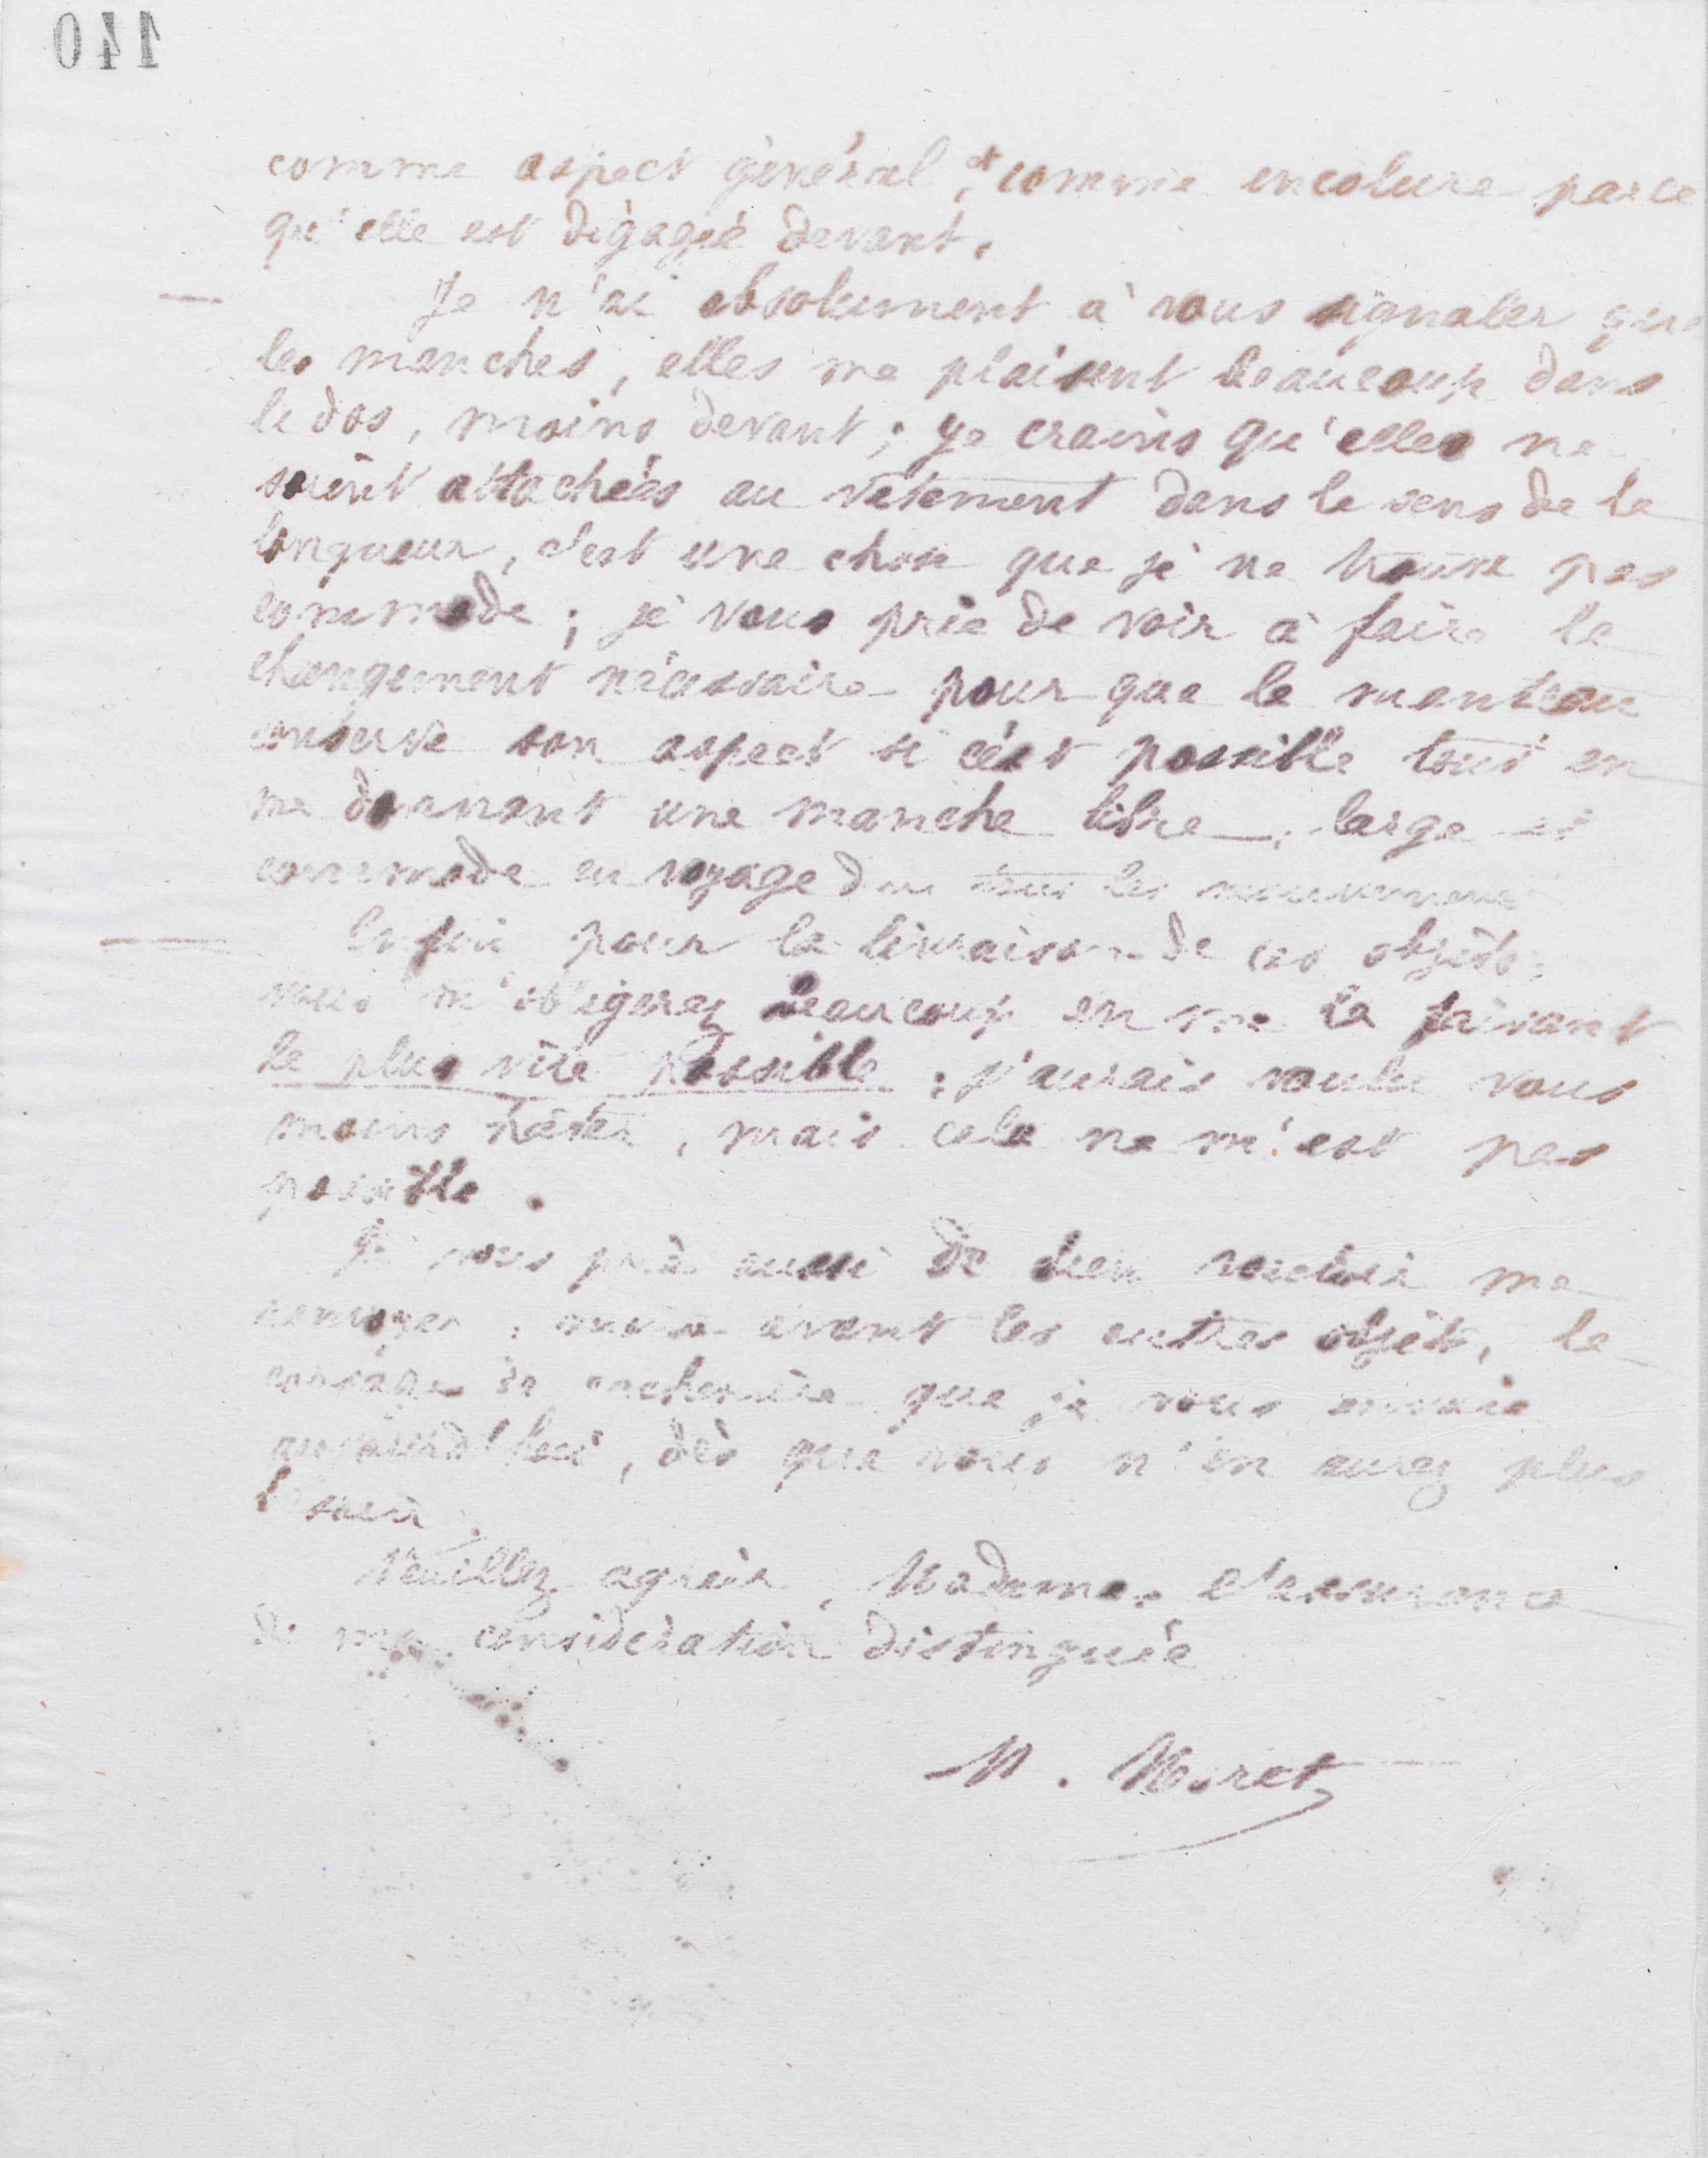 140
comme aspect général, et comme encolure parce
qu'elle est dégagée devant.
Je n'ai absolument à vous signaler que
les manches, elles me plaisent beaucoup dans
le dos, moins devant ; je crains qu'elles ne
soient attachées au vêtement dans le sens de la
longueur, c'est une chose que je ne trouve pas
commode ; je vous prie de voir à faire le
changement nécessaire pour que le manteau
conserve son aspect si c'est possible tout en
me donnant une manche libre, large et
commode en voyage dans tous les mouvements
Enfin pour la livraison de ces objets,
vous m'obligerez beaucoup en me la faisant
le plus vite possible ; j'aurais voulu vous
moins hâter, mais cela ne m'est pas
possible.
Je vous prie aussi de bien vouloir me
renvoyer, avant les autres objets, le
corsage de cachemire que je vous envoie
aujourd'hui, dès que vous n'en aurez plus
besoin.
Veuillez agréer, Madame, l'assurance
de ma considération distinguée
M. Moret